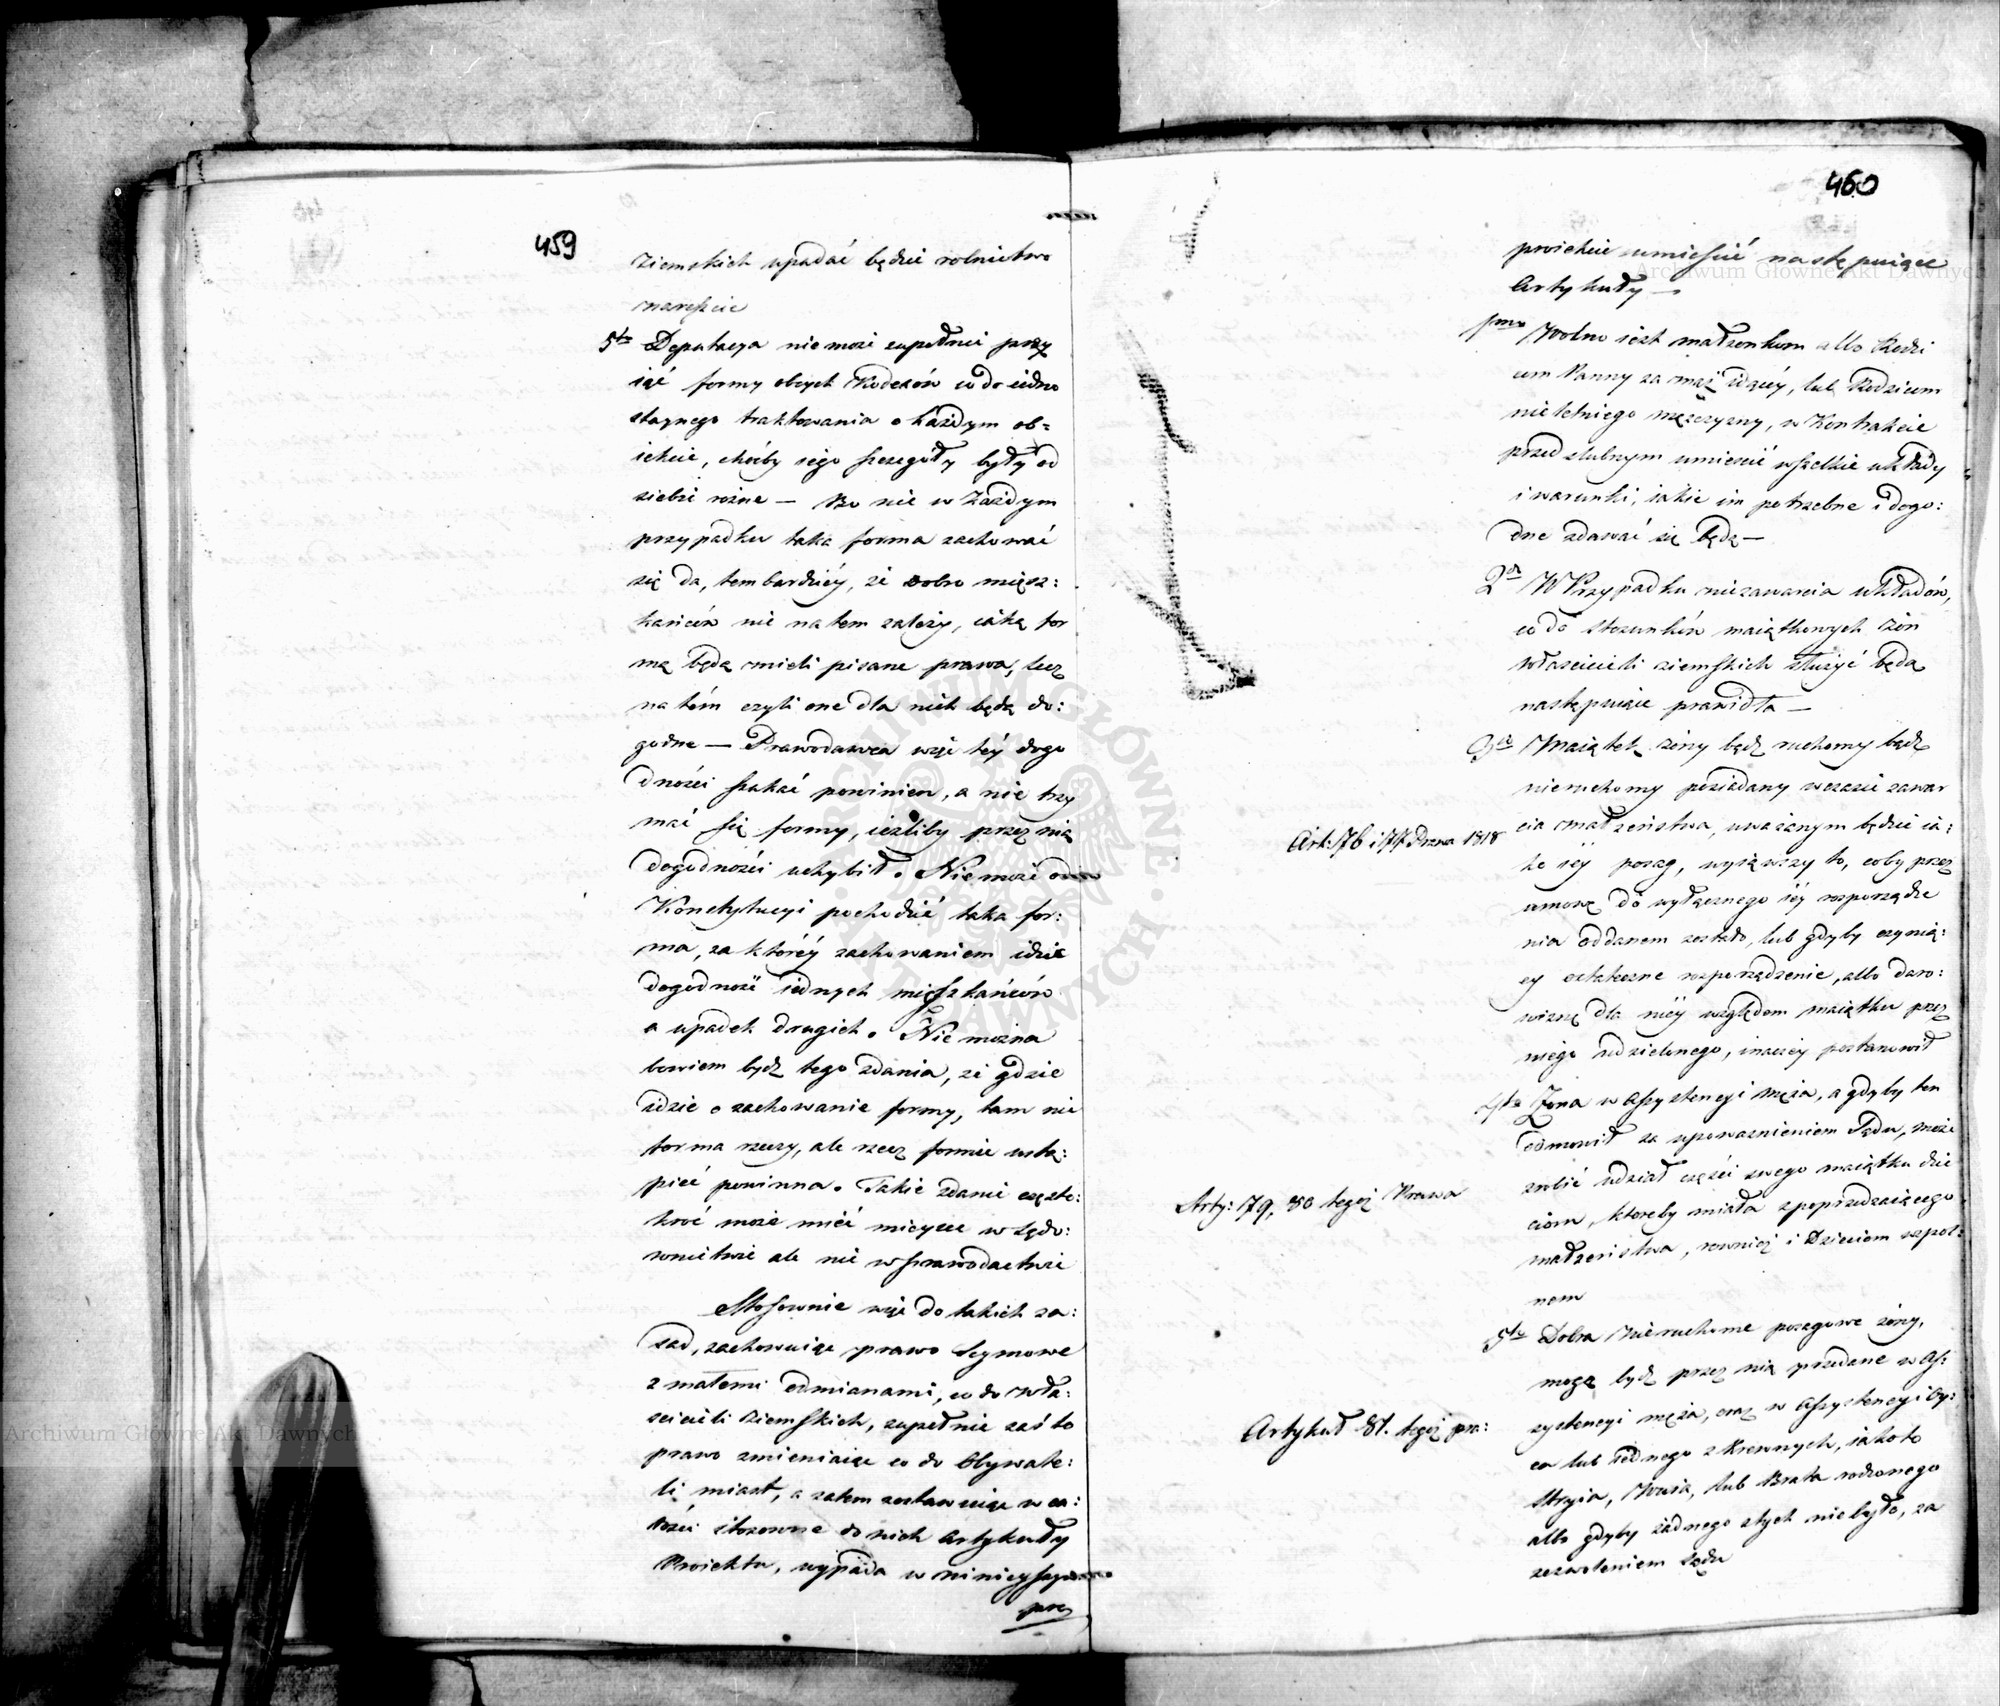 459
ziemskich upadać będzie rolnictwo
nareszcie
5to Deputacya niemoże zupełnie przy
iąć formy obcych Kodexów co do iedno
staynego traktowania o każdym ob=
iekcie, choćby iego szczegóły były od
siebie rożne — Bo nie w każdym
przypadku taka forma zachować
się da, tembardziéy, że dobro miesz:
kańców nie natem zależy, iaką for
mę będą mieli pisane prawa, lecz
natém czyli one dla nich będą do:
godne — Prawodawca więc téy dogo
dności szukać powinien, a nie trzy
mać się formy, ieżliby przez nią
dogodności uchybił. Niemoże
Konstytucyi pochodzić taka for:
ma, za któréy zachowaniem idzie
dogodność iednych mieszkańców
a upadek drugich. Nie można
bowiem bydź tego zdania, że gdzie
idzie o zachowanie formy, tam nie
forma rzeczy, ale rzecz formie ustą:
pić powinna. Takie zdanie często:
kroć może mieć mieysce w sądo:
wnictwie ale nie w prawodactwie
Stosownie więc do takich za:
sad, zachowuiąc prawo Seymowe
z małemi odmianami, co do wła:
scicieli ziemskich, zupełnie zaś to
prawo zmieniaiąc co do Obywate:
li miast, a zatem zostawuiąc w ca:
łości stosowne do nich artykuły
Proiektu, wypada w ninieyszym
pro
460
proiekcie umieścić następuiące
Artykuły —
pmo Wolno iest małżonkom albo Rodzi
com Panny za mąż idącéy, lub Rodzicom
nieletniego męszczyzny, w Kontrakcie
przedslubnym umieścić wszelkie układy
i warunki, iakie im potrzebne i dogo:
dne zdawać się będą —
2do W Przypadku niezawarcia układów,
co do stosunków maiątkowych żon
własciceli ziemskich służyć będą
następuiące prawidła —
3tio Maiątek żony bądź ruchomy bądź
nieruchomy posiadany wczasie zawar
cia małżeństwa, uważanym będzie ia:
ko iéy posag, wyiąwszy to, coby przez
umowę do wyłącznego iéy rozporządze
nia oddanem zostało, lub gdyby czynią:
cy ostateczne rozporządzenie, albo daro:
wiznę dla niéy względem maiątku przez
niego udzielonego, inaczéy postanowił
Art: 76 i 77 Prawa 1818
4to Żona w assystencyi męża, a gdyby ten
odmowił za upoważnieniem Sądu, może
zrobić udział części swego maiątku dzie
ciom, ktoreby miała zpoprzedzaiącego
małżeństwa, rownież i Dzieciom wspol:
nem
Arty: 79, 80 tegoż Prawa
5to Dobra Nieruchome posagowe żony,
mogą bydź przez nią przedane w as:
systencyi męża, oraz w assystencyi Oy:
ca lub iednego z Krewnych, iakoto
Stryia, Wuia, lub Brata rodzonego
albo gdyby żadnego ztych niebyło, za
zezwoleniem Sądu
Artykuł 81. tegoż pra:
Archiwum Główne Akt Dawnych
Archiwum Główne Akt Dawnych
ARCHIWUM GŁÓWNE AKT DAWNYCH